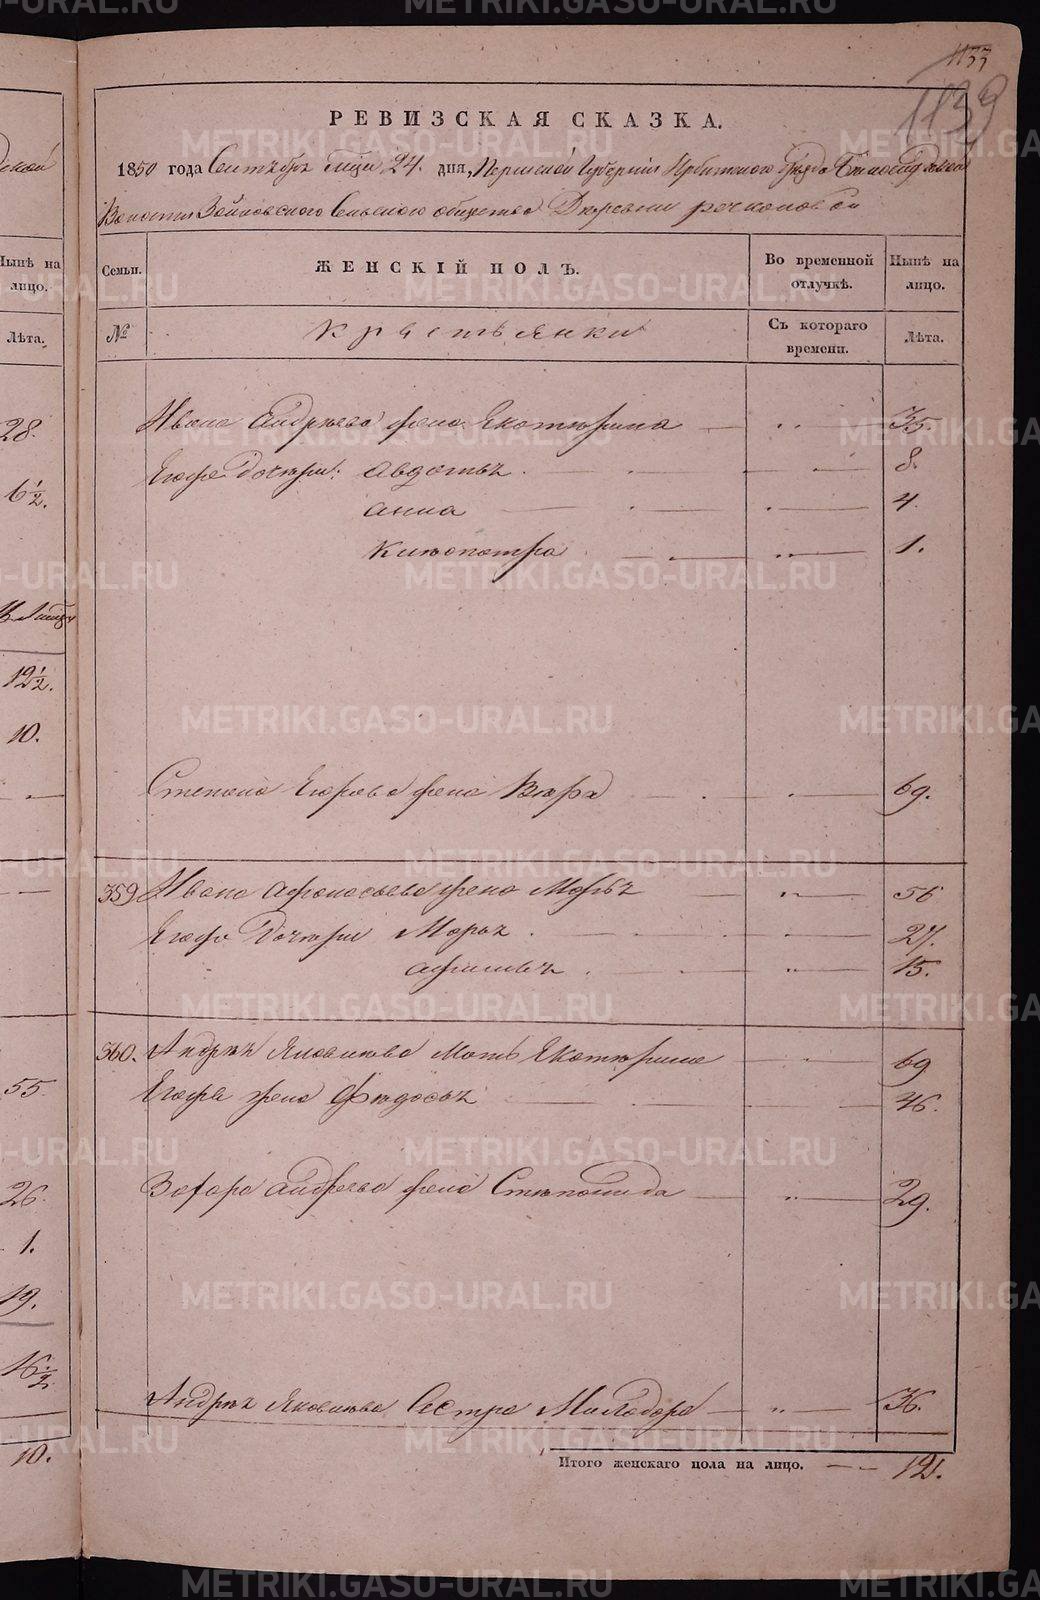 1133
1139
РЕВИЗСКАЯ СКАЗКА.
1850 года Сентября мца 24. дня, Пермской Губернiи Ирбитского Уезда Белослудской
Волости Зайковского Сельского общества Деревни Речкаловой
Семьи. ЖЕНСКIЙ ПОЛЪ. Во временной отлучкѣ. Нынѣ на лицо.
№ Крестьянки Съ котораго времени. Лѣта.
Ивана Андреева жена Екатерина — „ — 35.
Егора Дочери: Авдотья — 8.
Анна — 4.
Клиопатра — „ — 1.
Степана Егорова жена Вера — 69.
359 Ивана Афонасьева жена Марья — „ — 56
Егора Дочери Марья — 27.
Афимья — „ — 15.
360. Андрея Яковлева Мать Екатерина — 69
Егора жена Федосья — 46.
Захара Андреева жена Степанида — „ — 29.
Андрея Яковлева Сестра Милодора — „ — 36.
Итого женскаго пола на лицо. — — 12.
Нынѣ на лицо.
Лѣта.
28.
6½.
12½.
10.
55
26.
1.
19.
16½
10.
METRIKI.GASO-URAL.RU